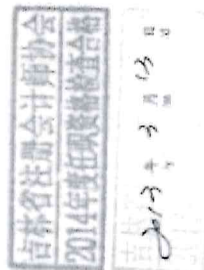 吉林省注册会计师协会
2014年度任职资格检查合格
2013 年 3 月 13 日